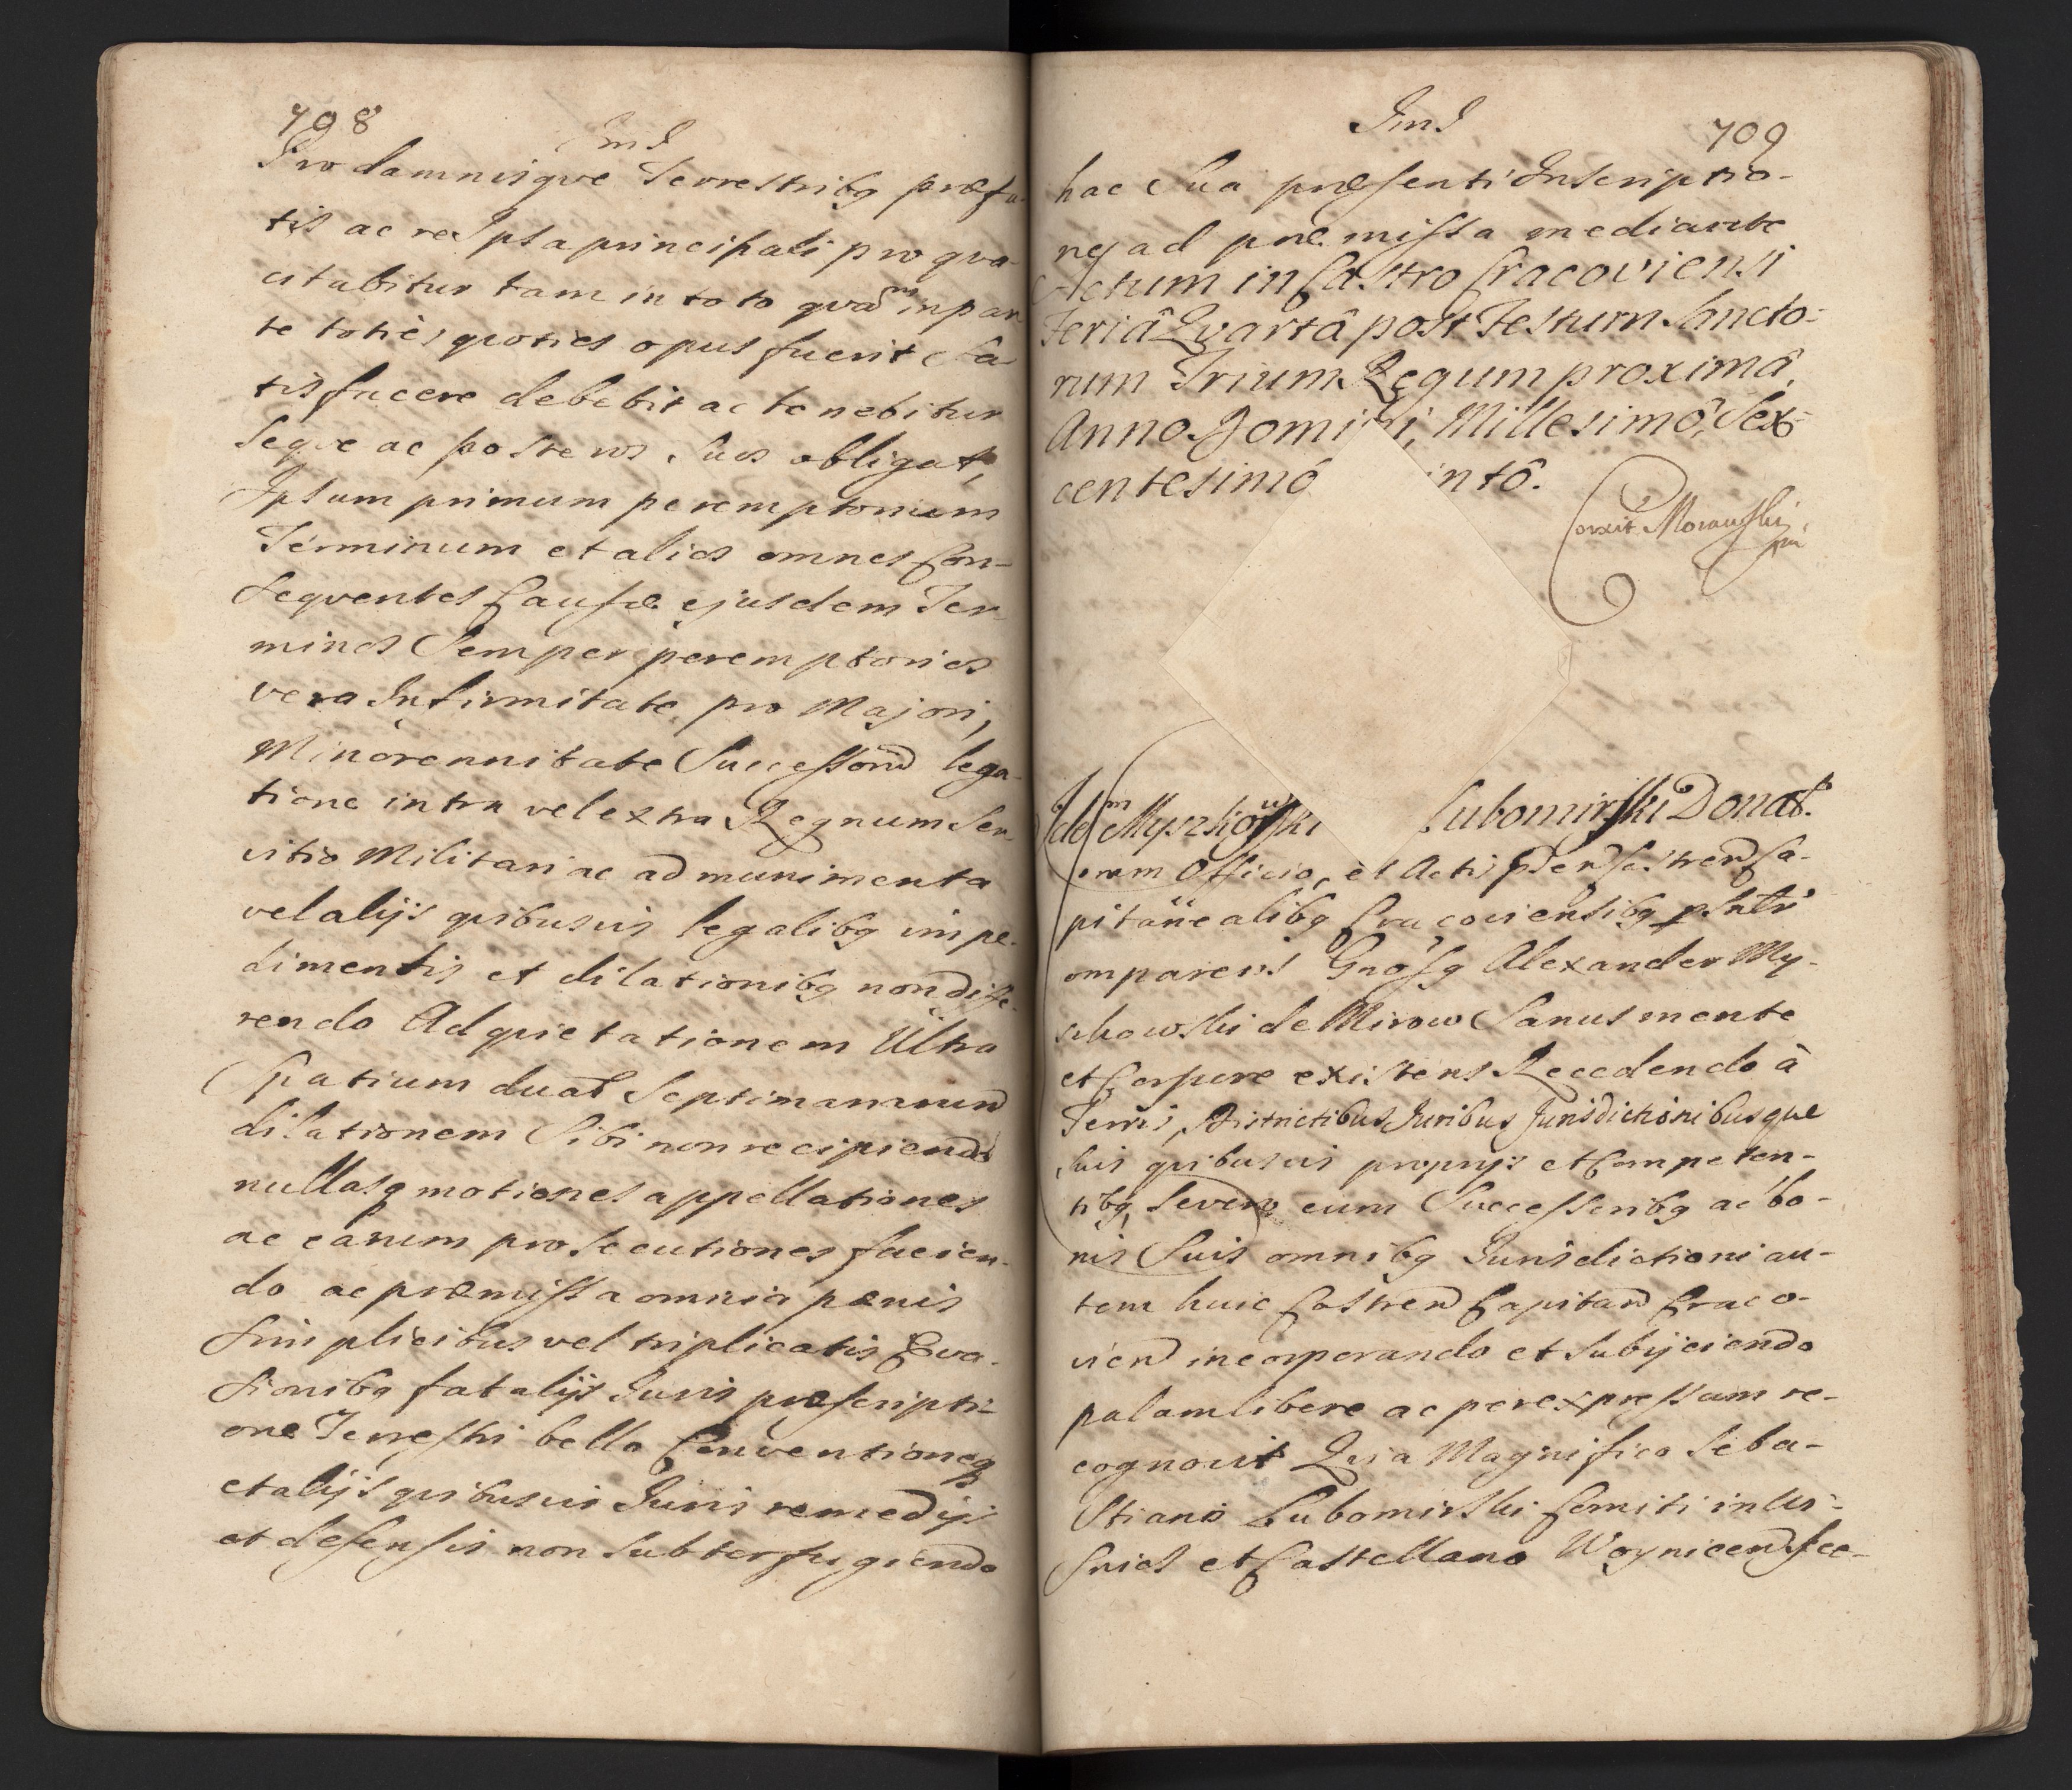 708
Ind
Pro damnisqve Terrestribq præfa-
tis ac re Ipsa principali pro qva
citabitur tam in toto qvam in par
te toties qvoties opus fuerit Sa-
tisfacere debebit ac tenebitur
Seqve ac posteros Suos obligat,
Ipsum primum peremptorium
Terminum et alios omnes Con-
Seqventes Causæ ejusdem Ter-
minos Semper peremptorios
vera Infirmitate pro Majori,
Minorennitate Successorū lega-
tione intra vel extra Regnum Ser
vitio Militari ac ad munimenta
vel alijs qvibusvis legalibq impe-
dimentis et dilationibq non diffe-
rendo Ad qvietationem Ultra
Spatium duaR Septimanarum
dilationem Sibi non recipiendo
nullasq motiones appellationes
ac earum prosecutiones facien-
do ac præmissa omnia pænis
Simplicibus vel triplicatis Eva-
sionibq fatalijs Juris præscripti-
one Terrestri bello Conventioneq
et alijs qvibusvis Juris remedijs
et defensis non Subterfugiendo
Ind
709
hac Sua præsenti Inscriptio-
ne ad præmissa mediante
Actum in Castro Cracoviensi
Feriâ Qvartâ post Festum Sancto-
rum Trium Regum proximâ,
Anno Domini, Millesimô, Sex-
centesimô intô.
Corrxit Morawski
mp
Idem Myszkowski Lubomirski Donat.
oram Officio, et Actis pden Castren Ca-
pitanealibq Cracoviensibq psntr
omparens Gnosq Alexander My-
szkowski de Mirow Sanus mente
et Corpore existens Recedendo à
Terris, Districtibus Juribus Jurisdictionibusque
Suis qvibusvis proprijs et Competen-
tibq, Severo cum Successoribq ac bo-
nis Suis omnibq Jurisdictioni au-
tem huic Castren Capitan Craco-
vien incorporando et Subijciendo
palam libere ac per expressum re-
cognovit Qvia Magnifico Seba-
Stiano Lubomirski Comiti in Wi-
Snicz et Castellano Woynicen Sce-